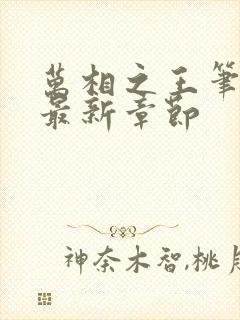 萬相之王筆
最新章節
神奈木智,桃月